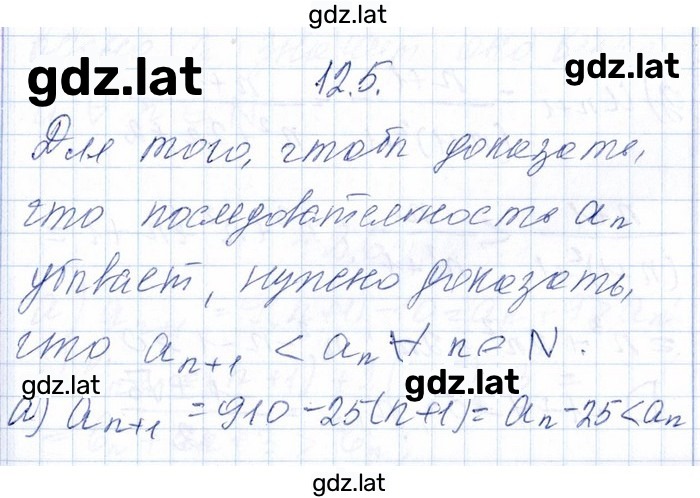 gdz.lat
gdz.lat
gdz.lat
12.5.
Для того, чтобы доказать,
что последовательность aₙ
убывает, нужно доказать,
что aₙ₊₁ < aₙ ∀ n ∈ N.
gdz.lat
gdz.lat
а) aₙ₊₁ = 910 - 25(n+1) = aₙ - 25 < aₙ
gdz.lat